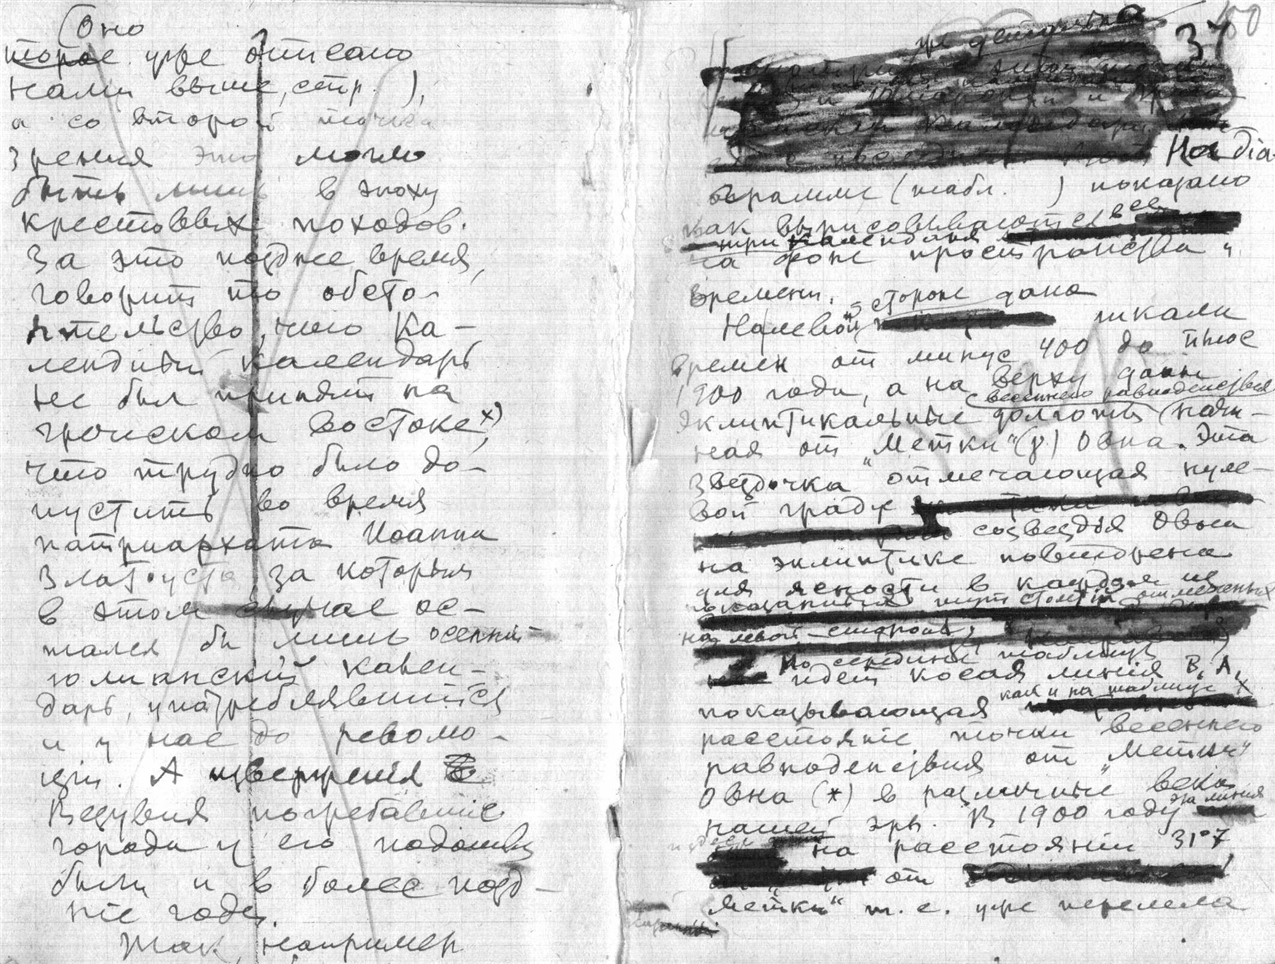 Оно
уже описано
нами выше, стр. ),
а со второй точки
зрения это могло
быть лишь в эпоху
крестовых походов.
За это позднее время,
говорит то обсто-
ятельство, что Ка-
лендный календарь
не был принят на
греческом востоке x),
что трудно было до-
пустить во время
патриархата Иоанна
Златоуста за которым
в этом случае ос-
тался бы лишь осенний
юлианский кален-
дарь, употреблявшийся
и у нас до револю-
ции. А извержения
Везувия погребавшие
города у его подошвы
были и в более позд-
ние годы.
Так, например
37
На диа-
грамме (табл. ) показано
как вырисовываются все
три календаря
на фоне пространства и
времени.
На левой стороне дана шкала
времен от минус 400 до плюс
1900 года, а на верху даны
с весеннего равноденствия
эклиптикальные долготы (начи-
ная от „Метки“ (γ) Овна. Эта
звездочка отмечающая нуле-
вой градус
созвездия Овна
на эклиптике повторена
для ясности в каждом из
указанных столетий отмеченных
на левой стороне,
По середине таблицы
идет косая линия В, А,
показывающая как и на таблице X
расстояние точки весеннего
равноденствия от „Метки“
Овна (*) в различные века
нашей эры. В 1900 году эта линия
на расстоянии 31°7
от
Метки“ т. е. уже перешла